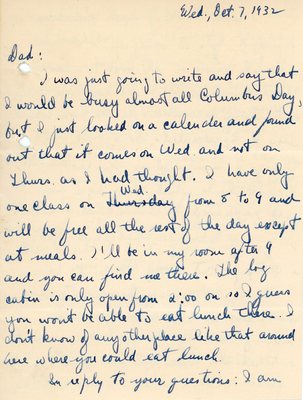 Wed., Oct. 7, 1932
Dad:
I was just going to write and say that
I would be busy almost all Columbus Day,
but I just looked on a calender and found
out that it comes on Wed. and not on
Thurs. as I had thought. I have only
Wed.
one class on Thursday from 8 to 9 and
will be free all the rest of the day except
at meals. I'll be in my room after 9
and you can find me there. The log
cabin is only open from 2:00 on so I guess
you won't be able to eat lunch there. I
don't know of any other place like that around
here where you could eat lunch.
In reply to your questions: I am